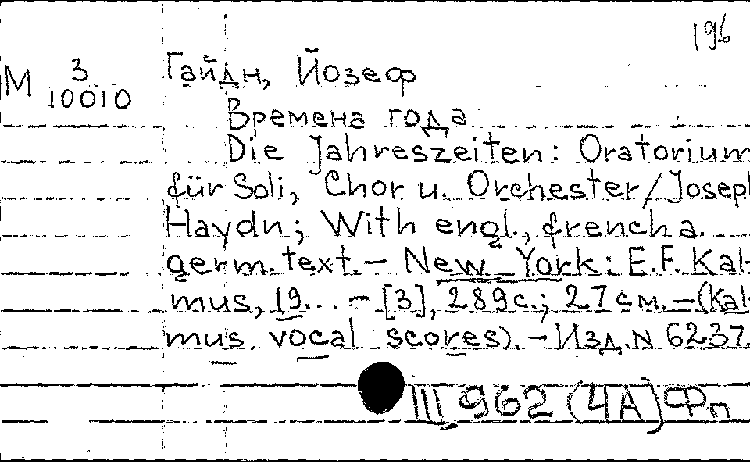 196
М 3 Гайдн, Йозеф
10010
Времена года
Die Jahreszeiten: Oratorium
für Soli, Chor u. Orchester/Joseph
Haydn; With engl., french a.
germ. text. – New York: E.F. Kal-
mus, 19.. – [3], 289 с.; 27 см. – (Kal-
mus vocal scores). – Изд. N 6237.
III 962 (4А) Фп